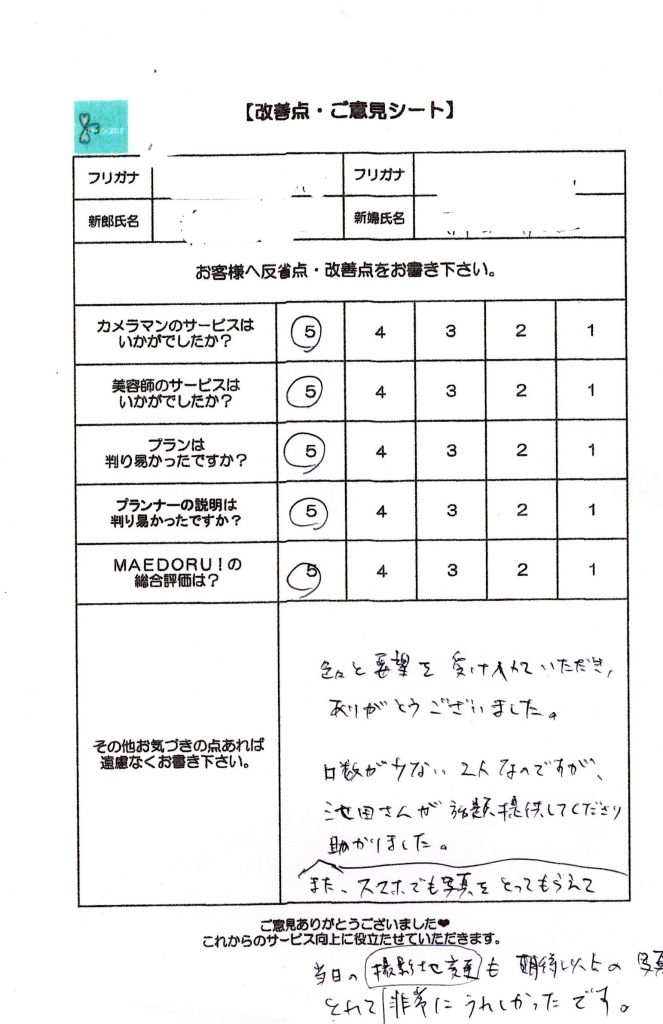 【改善点・ご意見シート】
フリガナ
フリガナ
新郎氏名
新婦氏名
お客様へ反省点・改善点をお書き下さい。
カメラマンのサービスは
いかがでしたか？
5 4 3 2 1
美容師のサービスは
いかがでしたか？
5 4 3 2 1
プランは
判り易かったですか？
5 4 3 2 1
プランナーの説明は
判り易かったですか？
5 4 3 2 1
MAEDORU！の
総合評価は？
5 4 3 2 1
その他お気づきの点あれば
遠慮なくお書き下さい。
色々と要望を受け入れていただき、
ありがとうございました。
口数が少ない2人なのですが、
池田さんが話題提供してくださり
助かりました。
また、スマホでも写真をとってもらえて
ご意見ありがとうございました❤
これからのサービス向上に役立たせていただきます。
当日の撮影地変更も期待以上の写真
とれて非常にうれしかったです。